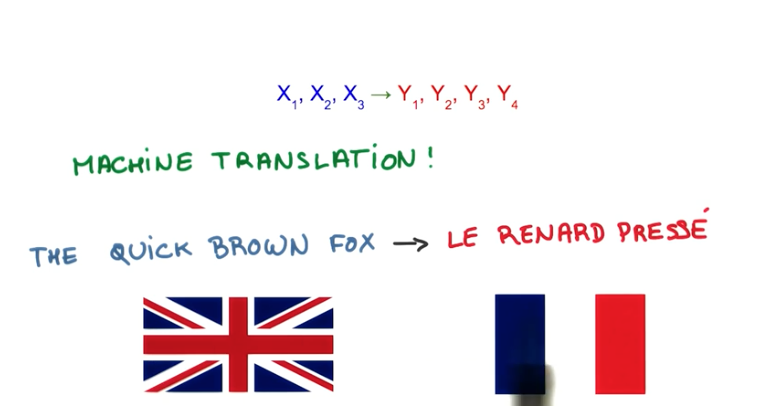 X₁, X₂, X₃ → Y₁, Y₂, Y₃, Y₄
MACHINE TRANSLATION!
THE QUICK BROWN FOX → LE RENARD PRESSÉ